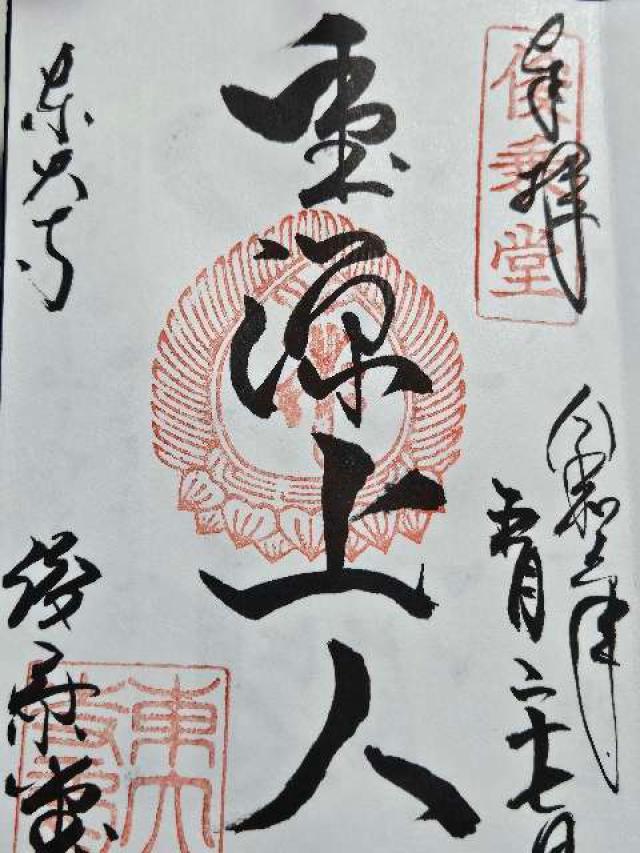 奉拝
俊乗堂
令和六年
五月二十七日
重源上人
東大寺
俊乗堂
東大